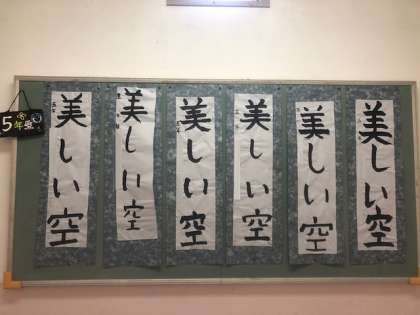 5年生
美しい空
美しい空
美しい空
美しい空
美しい空
美しい空